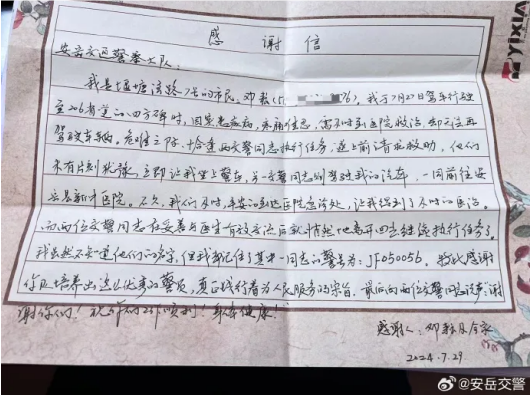 感谢信
安岳交通警察大队:
我是堰塘湾路7号的市民,邓
我于7月27日驾车行驶
至206省道的四方碑时,因突患疾病,疼痛
需及时到医院救治,却不能再
驾驶车辆。危难之际,恰逢两交警同志执行任务,遂上前请求救助,他们
未有片刻犹豫,立即让我坐上警车,另一交警同志则驾驶我的汽车,一同前往安
岳县
医院。不久,我们及时、平安的到达医院急诊处,让我得到了及时的医治。
而两位交警同志在妥善与医生有效交流后就悄然地离开回去继续执行任务了。
我虽然不知道他们的名字,但我却记住了其中一同志的警号为:JF050056,特此感谢
你队培养出这么优秀的警员,真正践行着为人民服务的宗旨。最后向两位交警同志说声:谢
谢你们!祝
工作顺利!身体健康!
感谢人:邓
及全家
2024.7.29.
YIXIA
@安岳交警